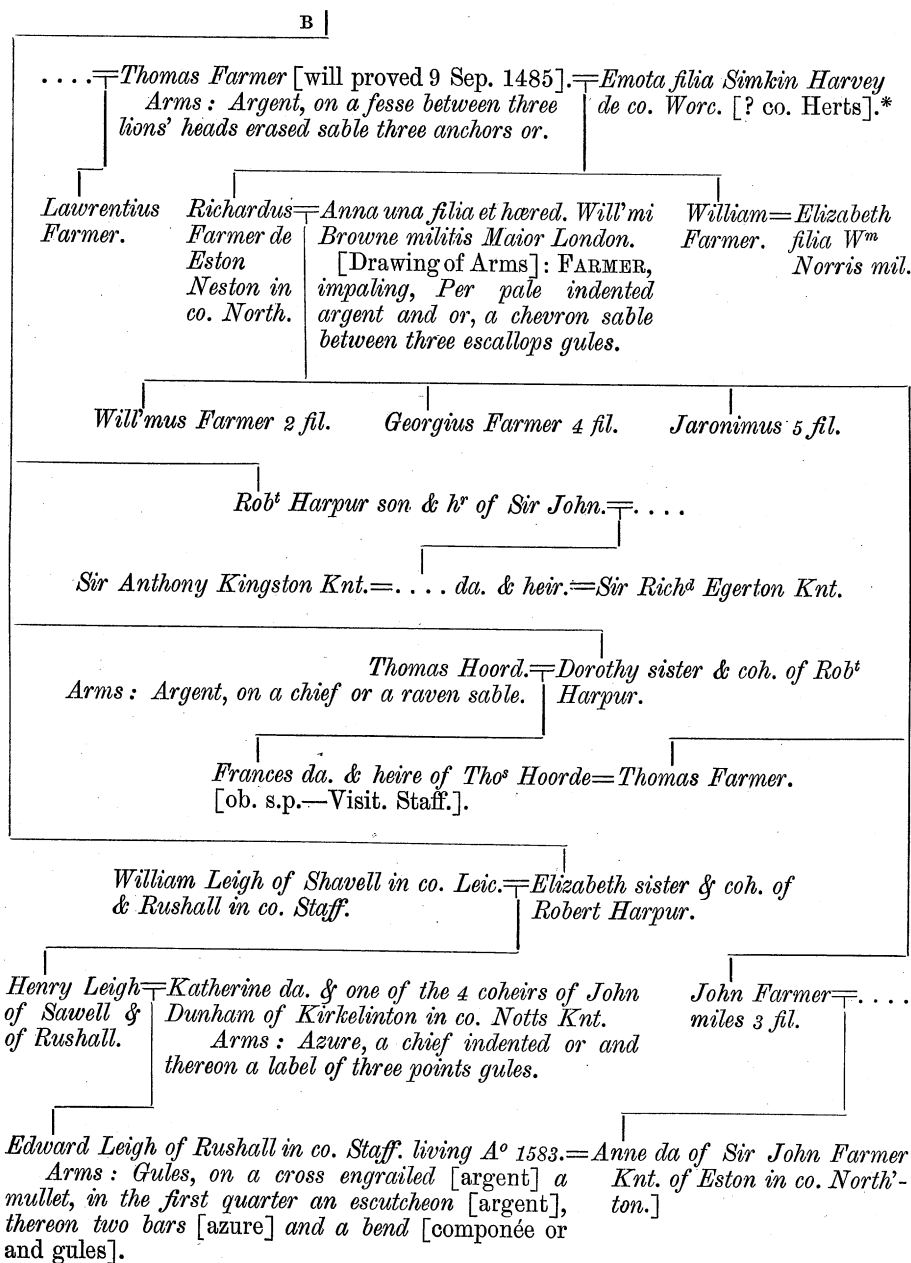 B
. . . . Thomas Farmer [will proved 9 Sep. 1485]. Emota filia Simkin Harvey
Arms : Argent, on a fesse between three
lions' heads erased sable three anchors or.
de co. Worc. [? co. Herts].*
Lawrentius
Farmer.
Richardus
Farmer de
Eston
Neston in
co. North.
Anna una filia et hæred. Will'mi
Browne militis Maior London.
[Drawing of Arms] : FARMER,
impaling, Per pale indented
argent and or, a chevron sable
between three escallops gules.
William = Elizabeth
Farmer. filia Wm
Norris mil.
Will'mus Farmer 2 fil.
Georgius Farmer 4 fil.
Jaronimus 5 fil.
Robt Harpur son & hr of Sir John. . . . .
Sir Anthony Kingston Knt.=. . . . da. & heir.=Sir Richd Egerton Knt.
Thomas Hoord. Dorothy sister & coh. of Robt
Arms : Argent, on a chief or a raven sable.
Harpur.
Frances da. & heire of Thos Hoorde=Thomas Farmer.
[ob. s.p.—Visit. Staff.].
William Leigh of Shavell in co. Leic. Elizabeth sister & coh. of
& Rushall in co. Staff.
Robert Harpur.
Henry Leigh
of Sawell &
of Rushall.
Katherine da. & one of the 4 coheirs of John
Dunham of Kirkelinton in co. Notts Knt.
Arms : Azure, a chief indented or and
thereon a label of three points gules.
John Farmer . . . .
miles 3 fil.
Edward Leigh of Rushall in co. Staff. living Ao 1583.=Anne da of Sir John Farmer
Arms : Gules, on a cross engrailed [argent] a
mullet, in the first quarter an escutcheon [argent],
thereon two bars [azure] and a bend [componée or
and gules].
Knt. of Eston in co. North'-
ton.]